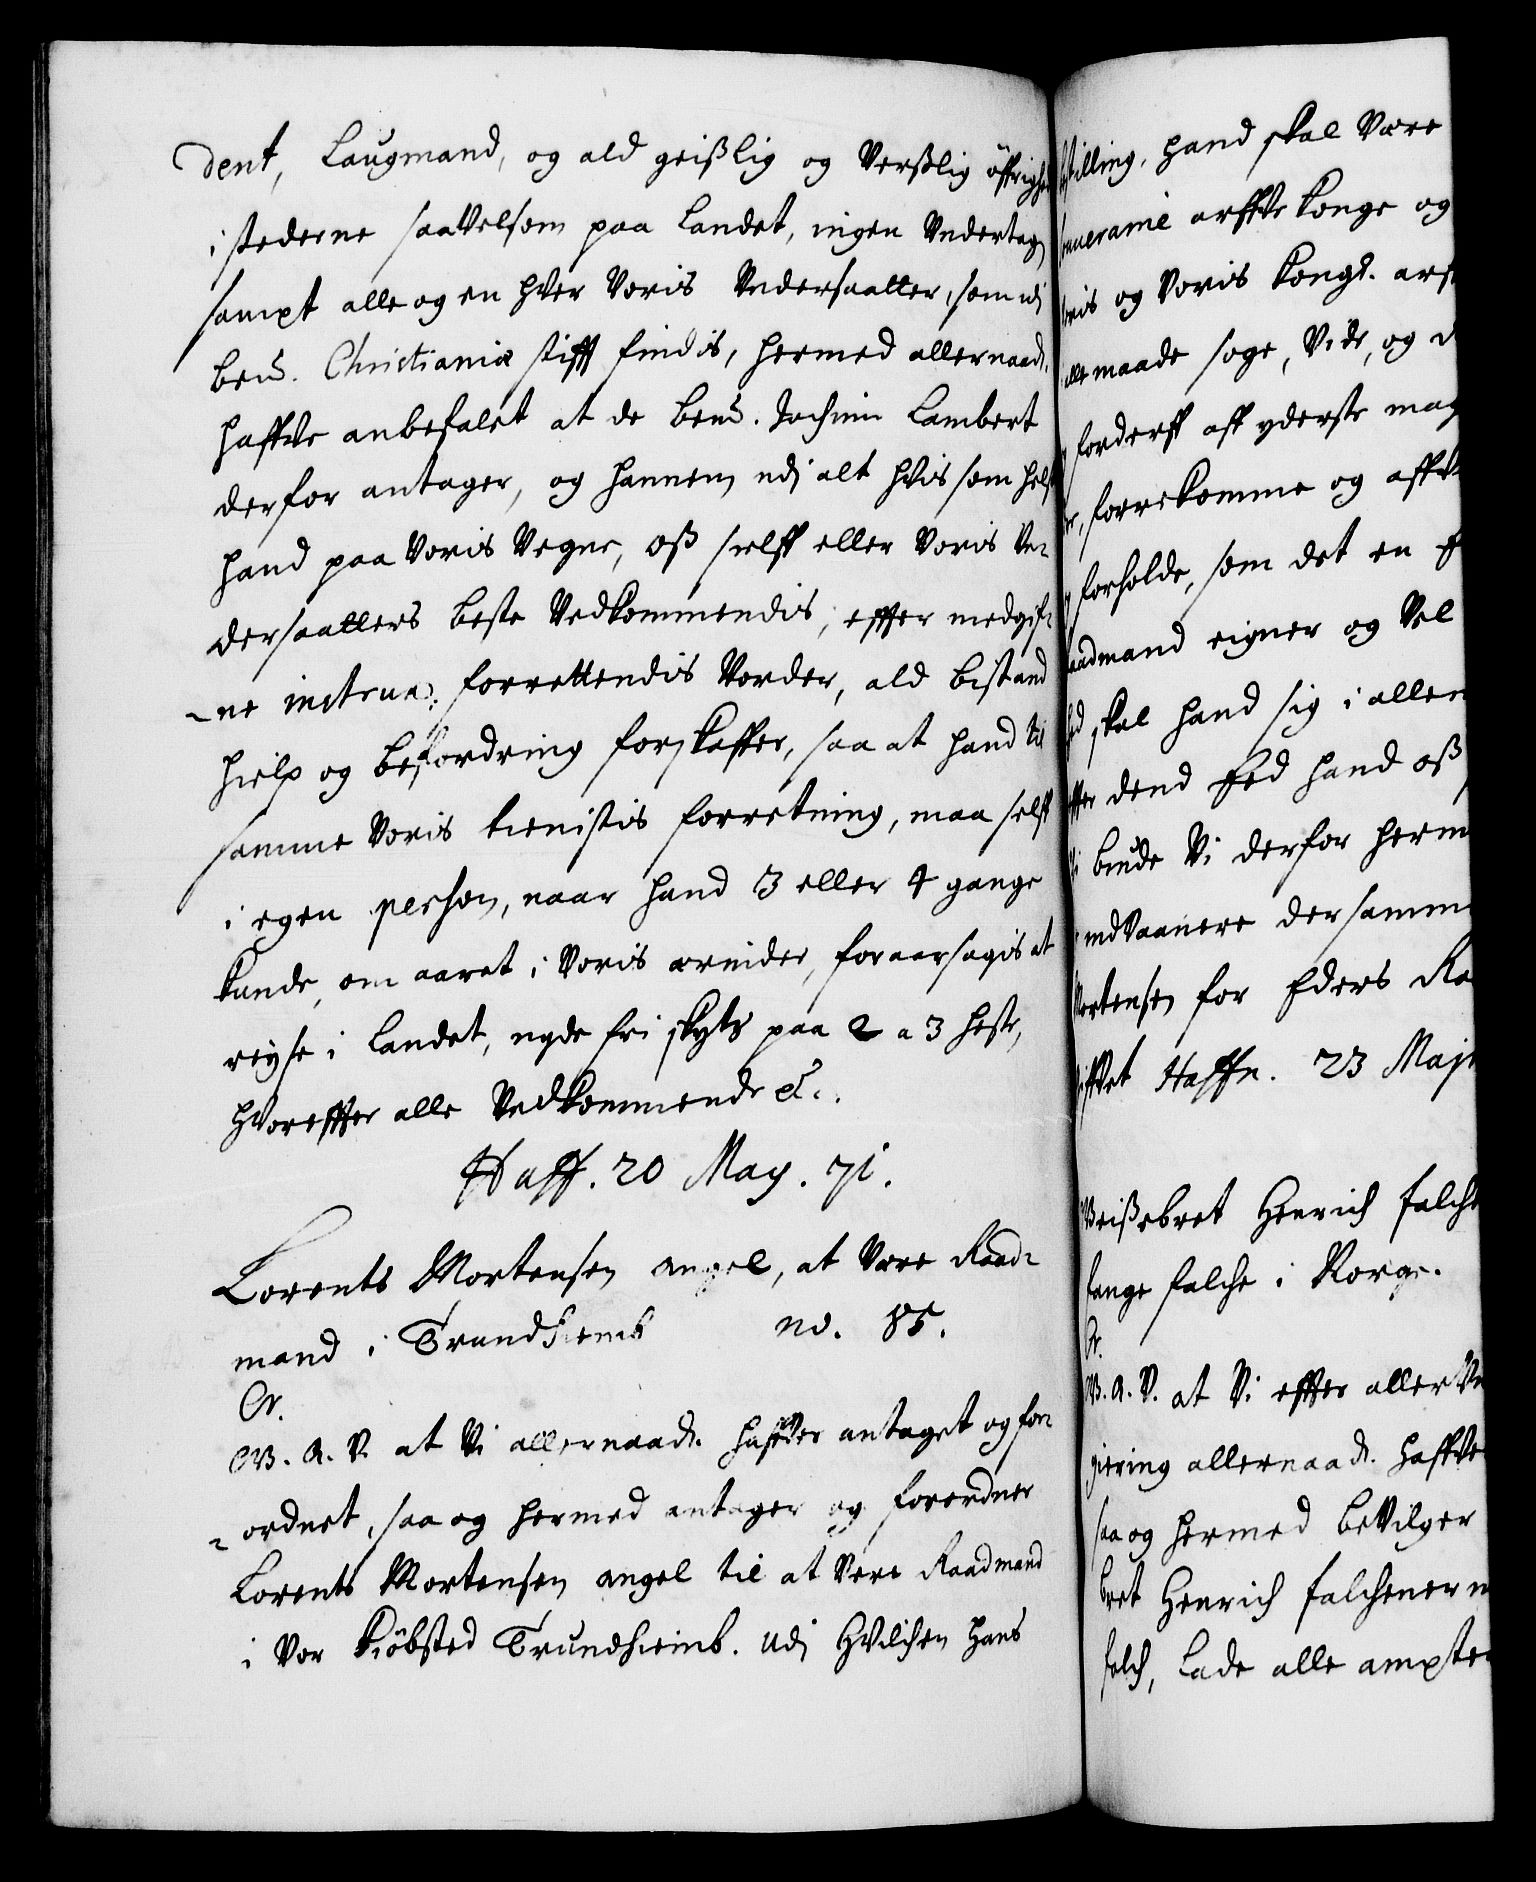 dent, Laugmand, og ald geistlig og Verslig öffrighed
i stederne saavelsom paa Landet, ingen Undertagen
sampt alle og en hver Voris Undersaatter, som udj
bem.te Christianiæ stifft findis, hermed allernaadt.
haffve anbefalet at de bem.te Jochim Lambert
derfor antager, og hannem udj alt hvis som helst
hand paa Voris Vegne, oß sielff eller Voris Un-
dersaatters beste Vedkommendis, effter medgif-
ne instrux, forrettendis Vorder, ald bistand
hielp og befordring forskaffer, saa at hand til
samme Voris tienistis forretning, maa self
i egen person, naar hand 3 eller 4 gange
kunde, om aaret i Voris ærinder, foraarsagis at
reyse i Landet, nyde fri skyts paa 2 a 3 heste,
hvoreffter alle Vedkommende etc.
Haff. 20 May. 71.
Lorents Mortensen angel, at Være Raad-
mand i Trundhiemb no. 85.
Cr.
G. A. V. at Vi allernaadt. haffver antaget og for-
ordnet, saa og hermed antager og forordner
Lorents Mortensen angel til at Vere Raadmand
i Vor kiöbsted Trundhiemb. Udj Hvilchen hans
stilling, hand skal Være
arffve Konge og
og Voris Kongl. arf
maade søge, Vide, og
forderff aff yderste mag
forrekomme og affv
forholde, som det en
raadmand eigner og Vel
skal hand sig i aller
dend Eed hand oß
biude Vi derfor herm
indvaanere dersamm
Mortensen for Eders Ra
Haffn. 23 Maji
Henrich falch
falche i Norge.
Cr.
G. A. V. at Vi effter aller
giering allernaadt. haffve
saa og hermed beVilger
bret Henrich falchener
falch, Lade alle ampter